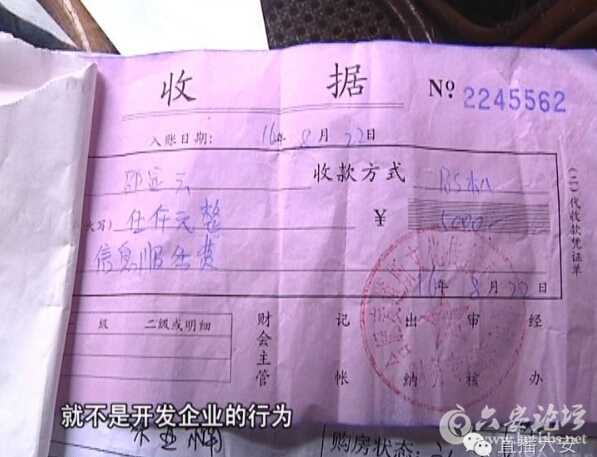 收 据 № 2245562
入账日期: 16年 8月 22日
收款方式 POS机
大写) 伍仟元整 ¥ 5000
信息服务费
16年 8月 22日
(二)代收款凭证单
级 二级或明细
财会主管 记帐 出纳 审核 经办
就不是开发企业的行为
购房状态:
六安论坛
直播六安